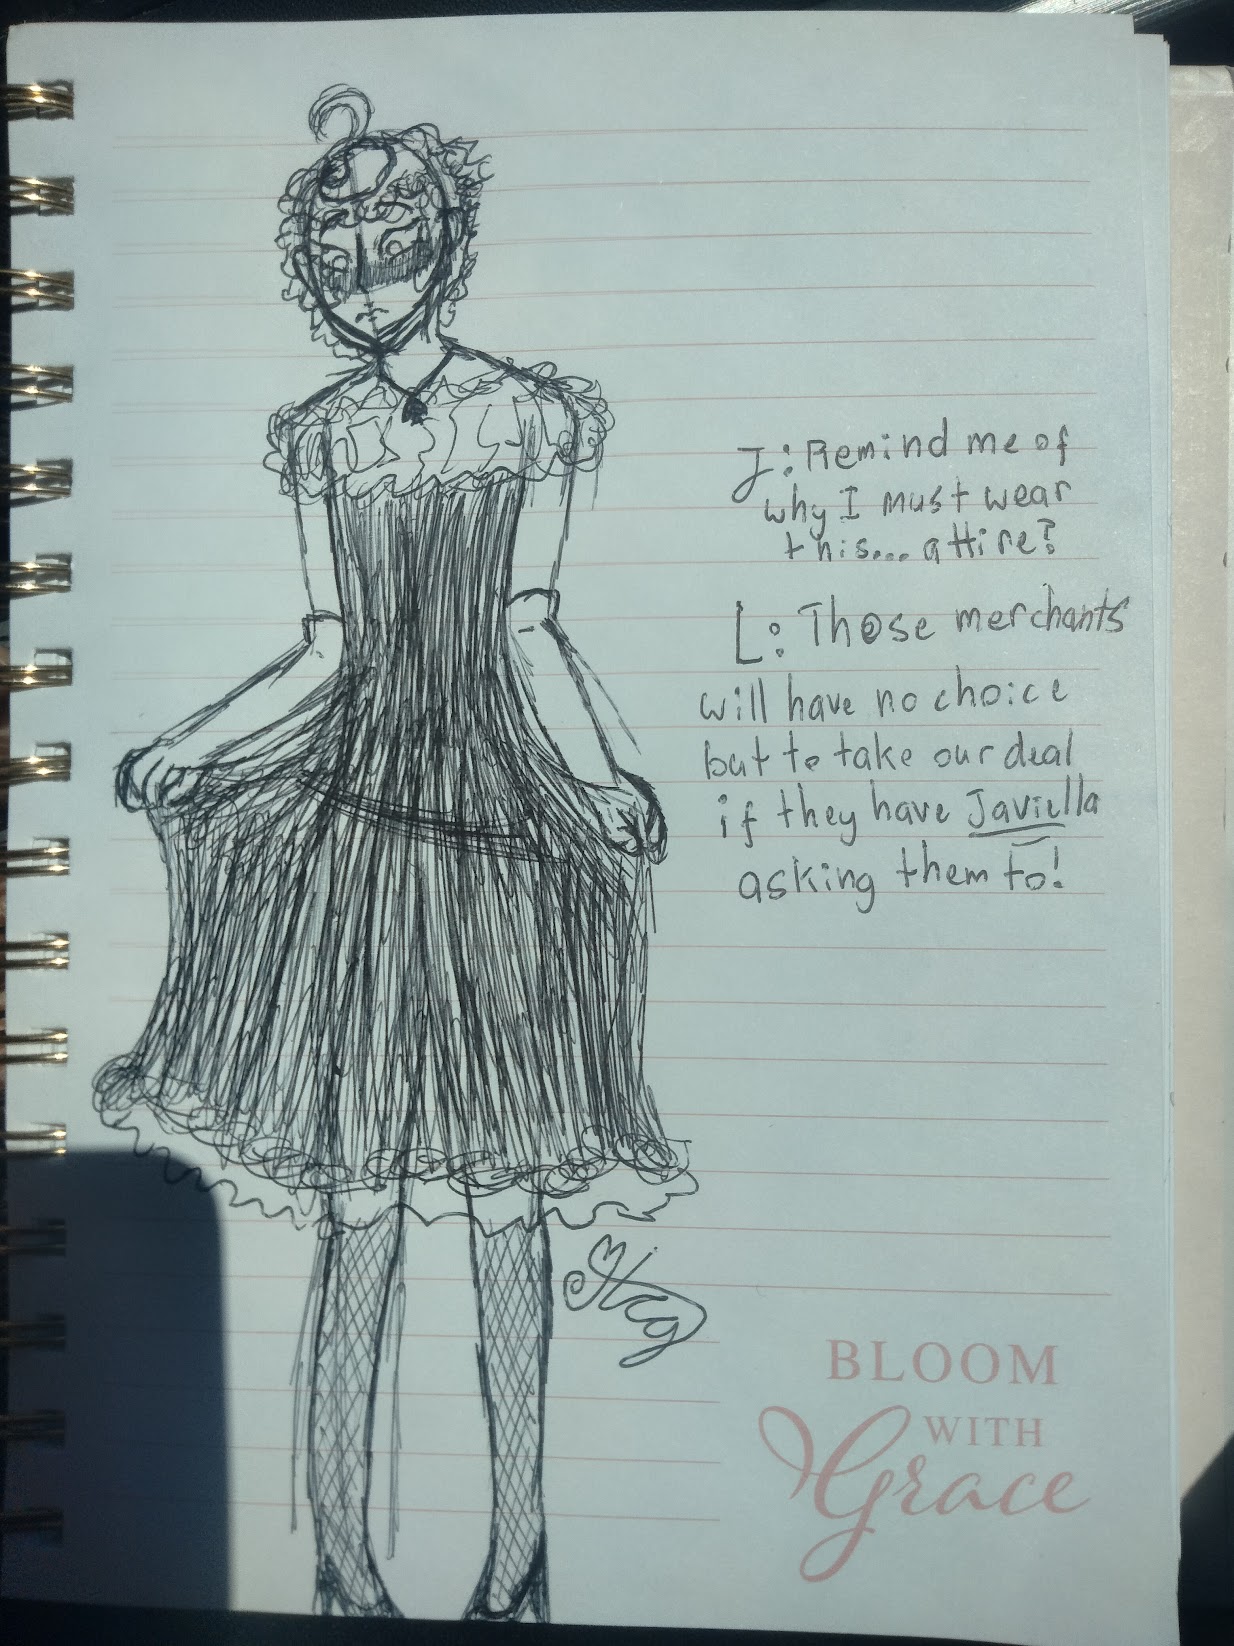 J: Remind me of
why I must wear
this... attire?
L: Those merchants
will have no choice
but to take our deal
if they have Javiella
asking them to!
BLOOM
WITH
Grace